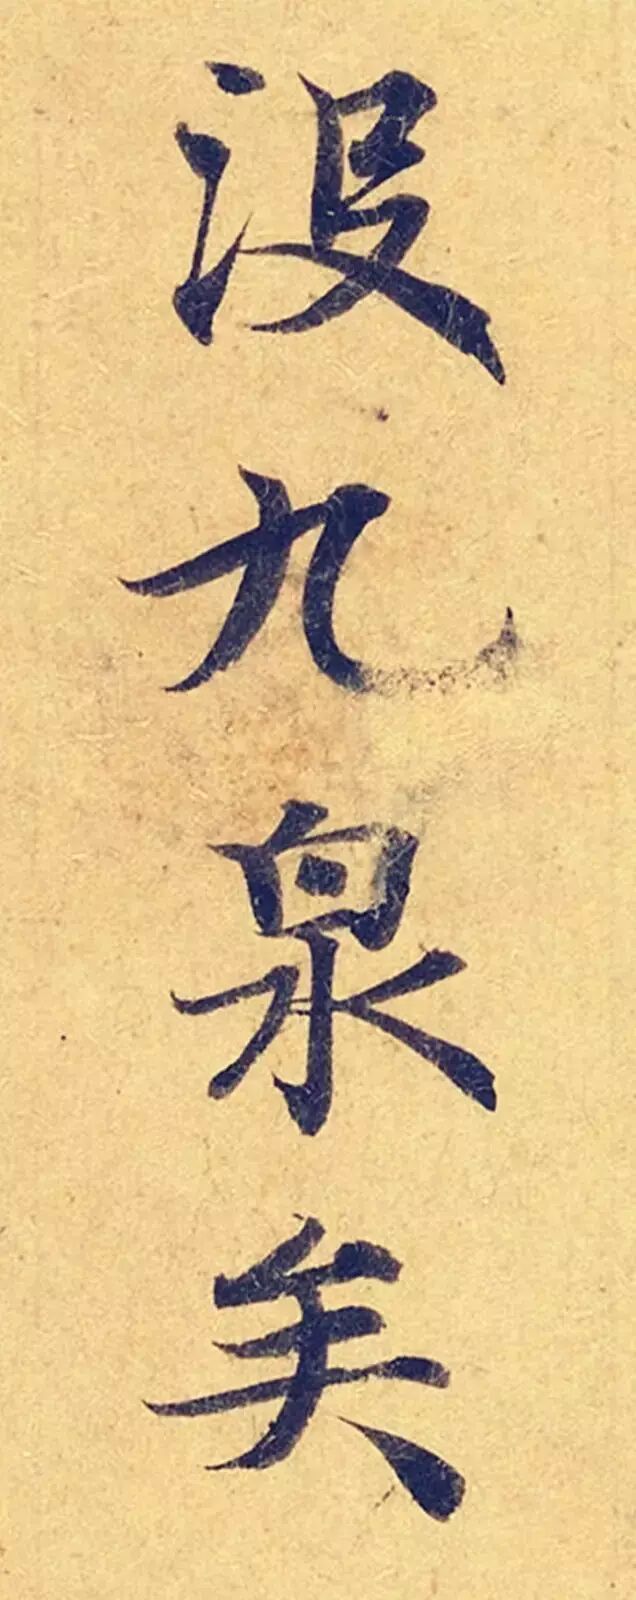 没九泉矣